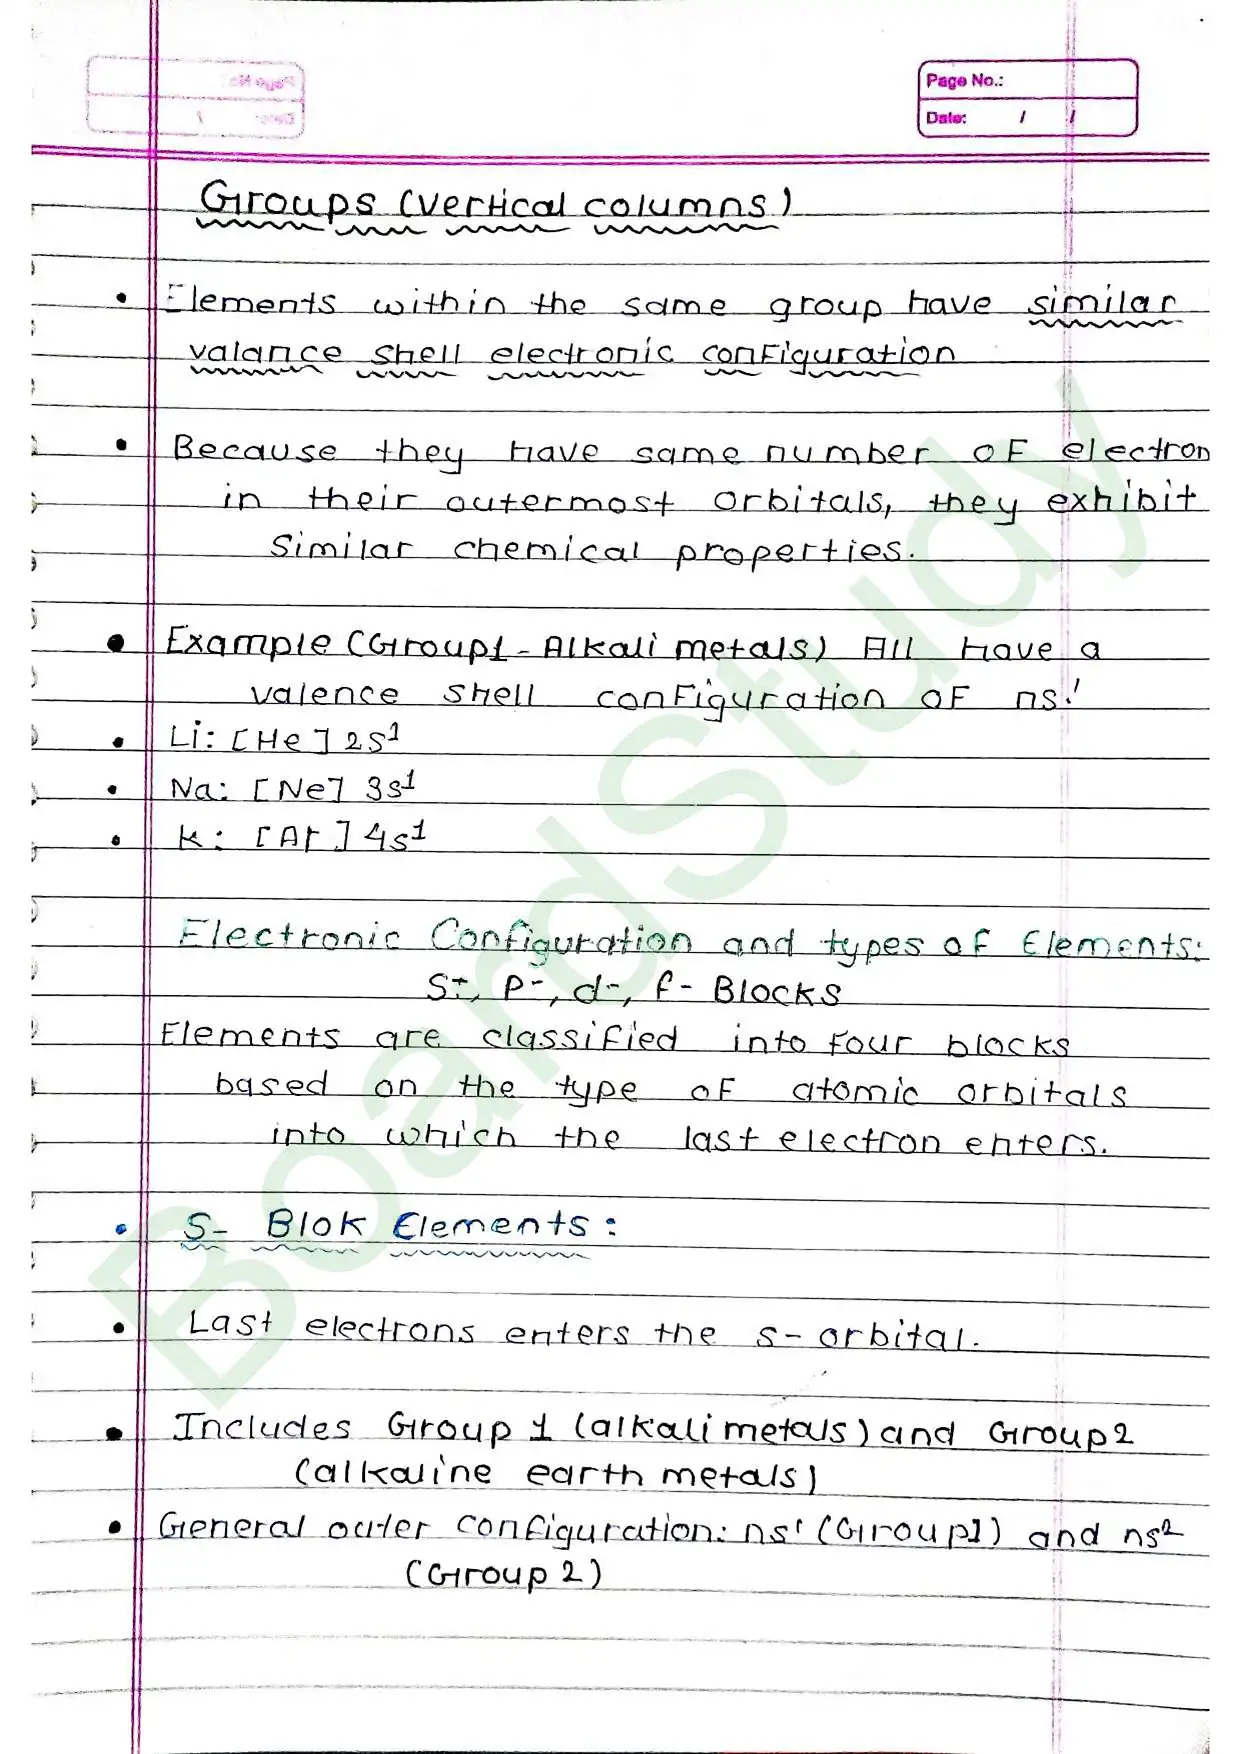 Page No.:
Date: / /
Groups (vertical columns)
• Elements within the same group have similar
valance shell electronic configuration
• Because they have same number of electron
in their outermost orbitals, they exhibit
Similar chemical properties.
• Example (Group1 - Alkali metals) All have a
valence shell configuration of ns¹
• Li: [He] 2s¹
• Na: [Ne] 3s¹
• K: [Ar] 4s¹
Electronic Configuration and types of Elements:
S-, P-, d-, f- Blocks
Elements are classified into four blocks
based on the type of atomic orbitals
into which the last electron enters.
• S- Blok Elements:
• Last electrons enters the s-orbital.
• Includes Group 1 (alkali metals) and Group 2
(alkaline earth metals)
• General outer configuration: ns¹ (Group1) and ns²
(Group 2)
BoardStudy